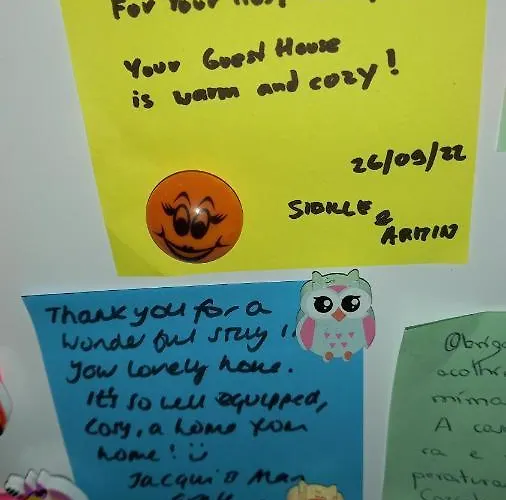 For Your
Your Guest House
is warm and cozy!
26/09/22
SIBILLE
&
ARMIN
Thank you for a
wonderful stay i
your lovely home.
It's so well equipped,
cosy, a home from
home! :)
Jacqui &
Obrig
acolhi
mima
A cas
ra e
peratura